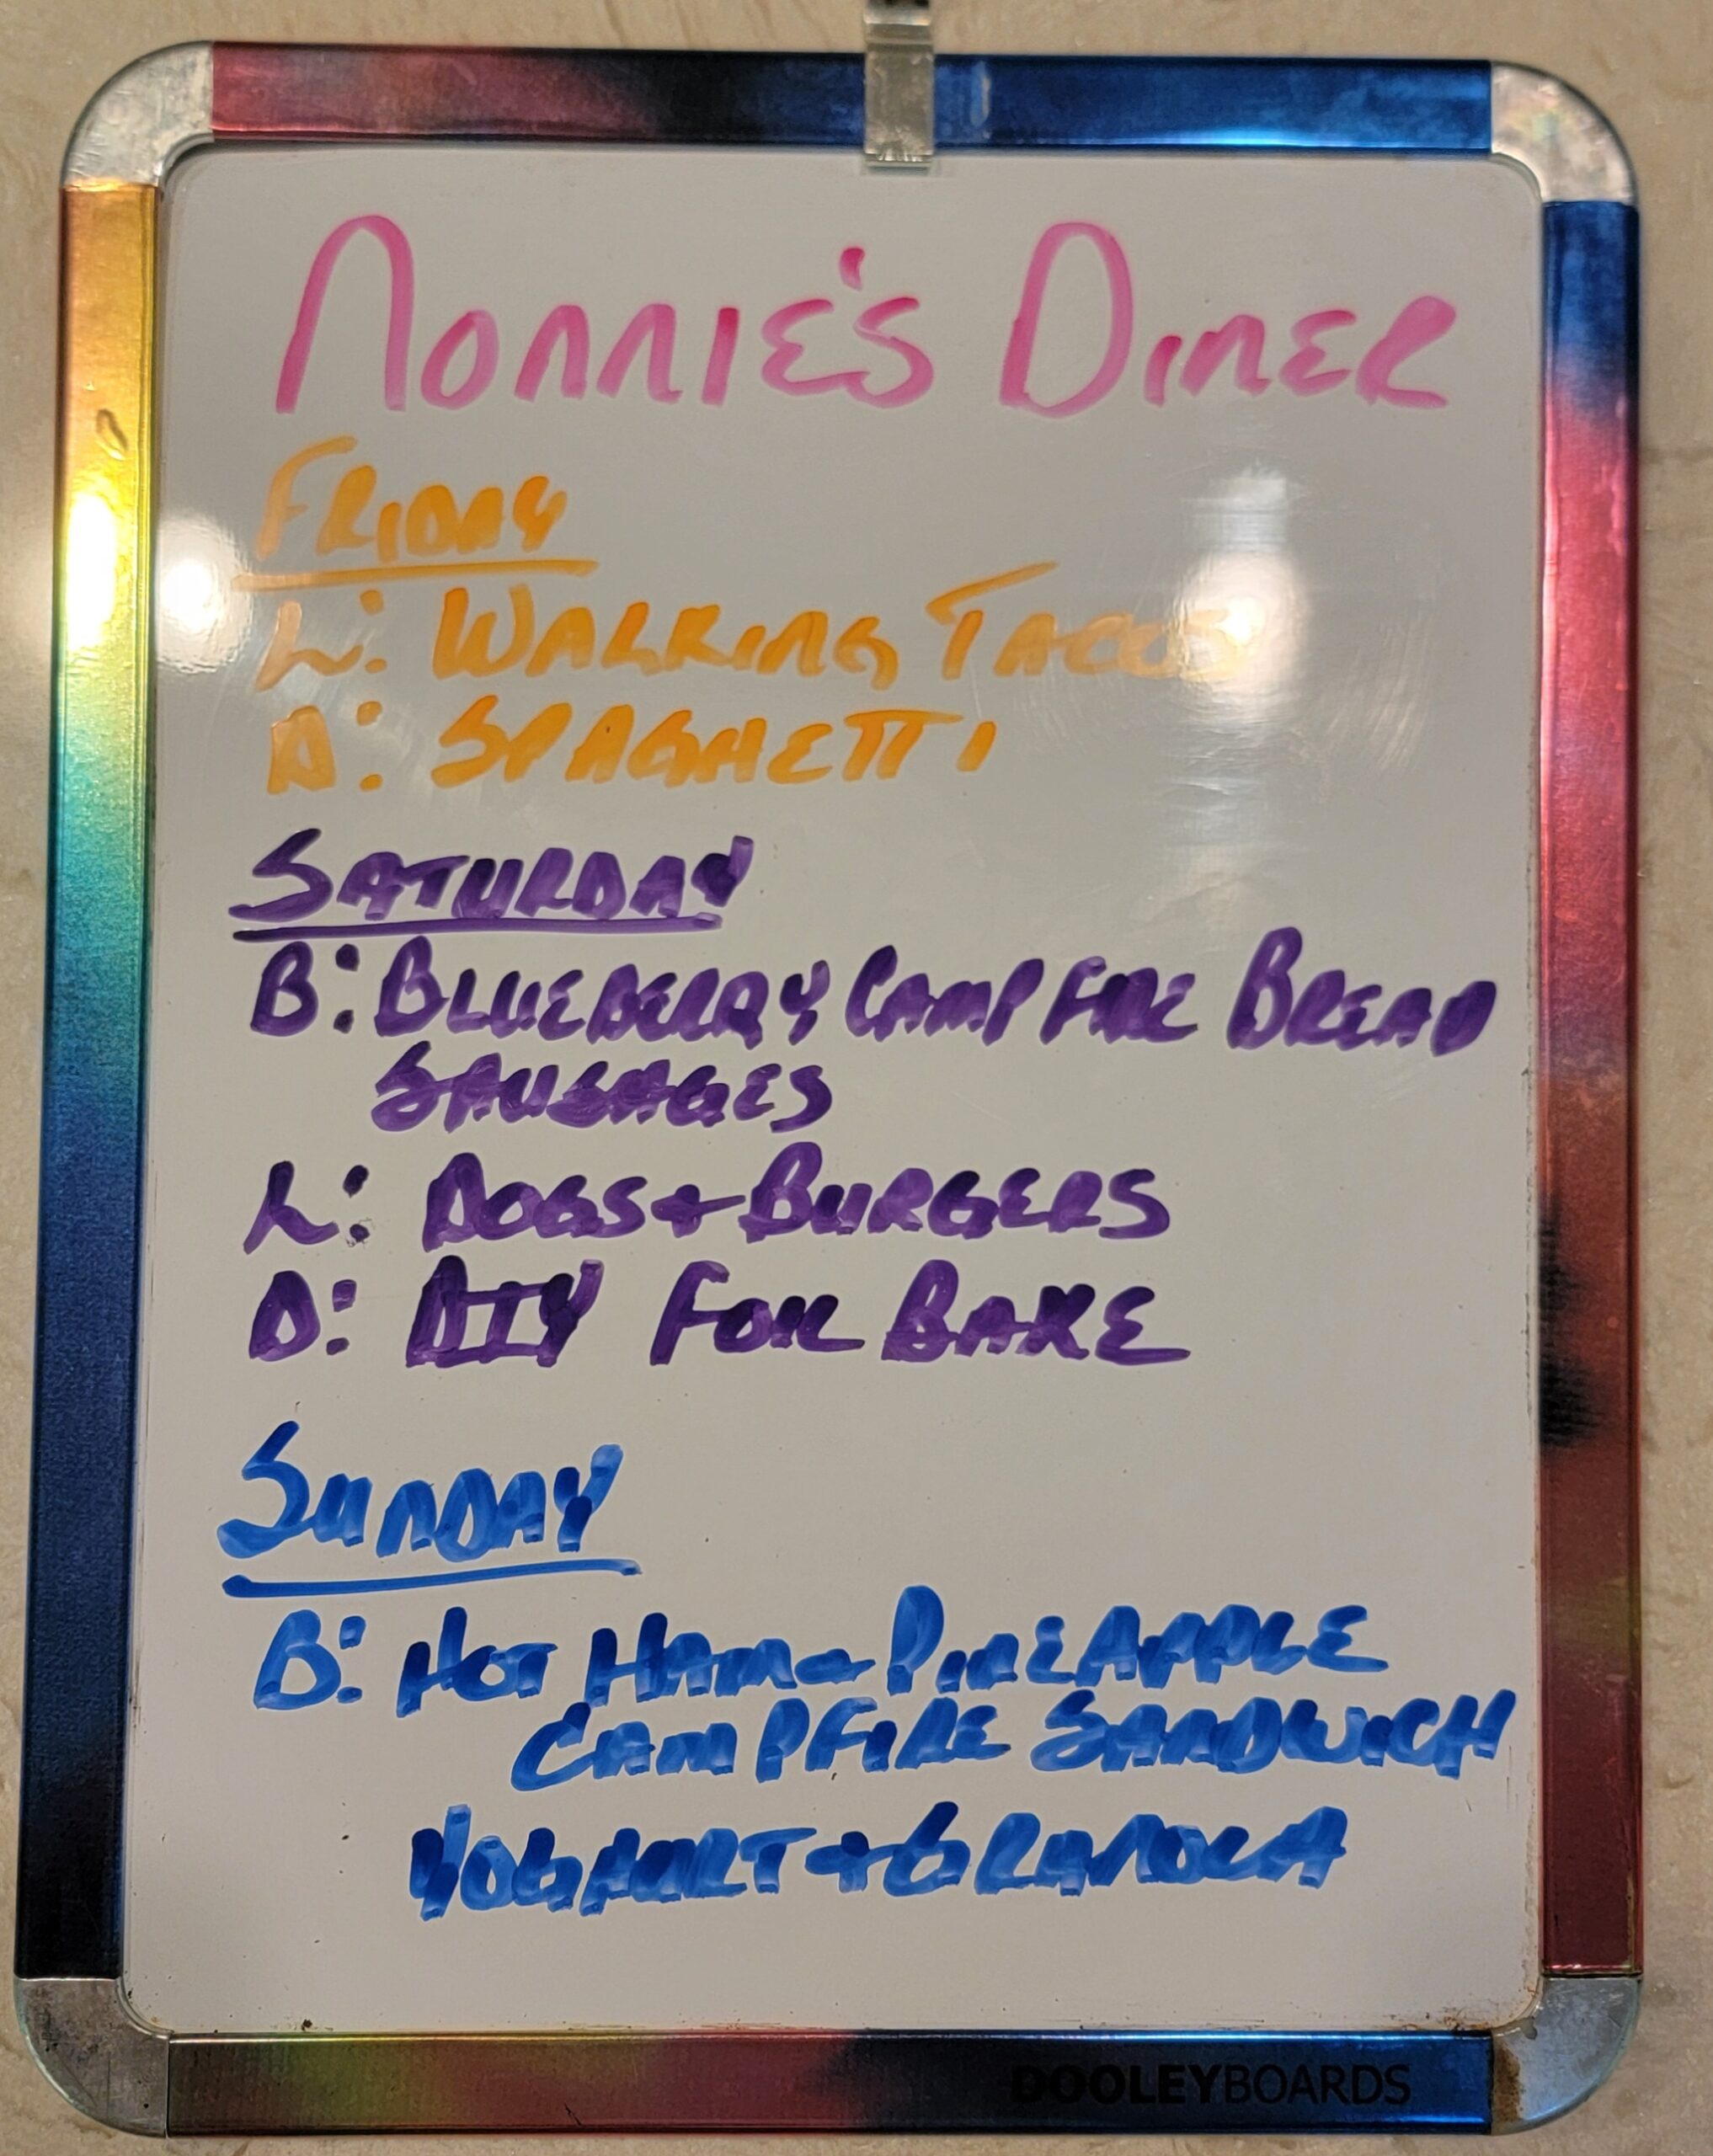 NONNIE'S DINER
FRIDAY
L: WALKING TACOS
D: SPAGHETTI
SATURDAY
B: BLUEBERRY CAMPFIRE BREAD
SAUSAGES
L: DOGS + BURGERS
D: DIY FOIL BAKE
SUNDAY
B: HOT HAM + PINEAPPLE
CAMPFIRE SANDWICH
YOGHURT + GRANOLA
DOOLEYBOARDS